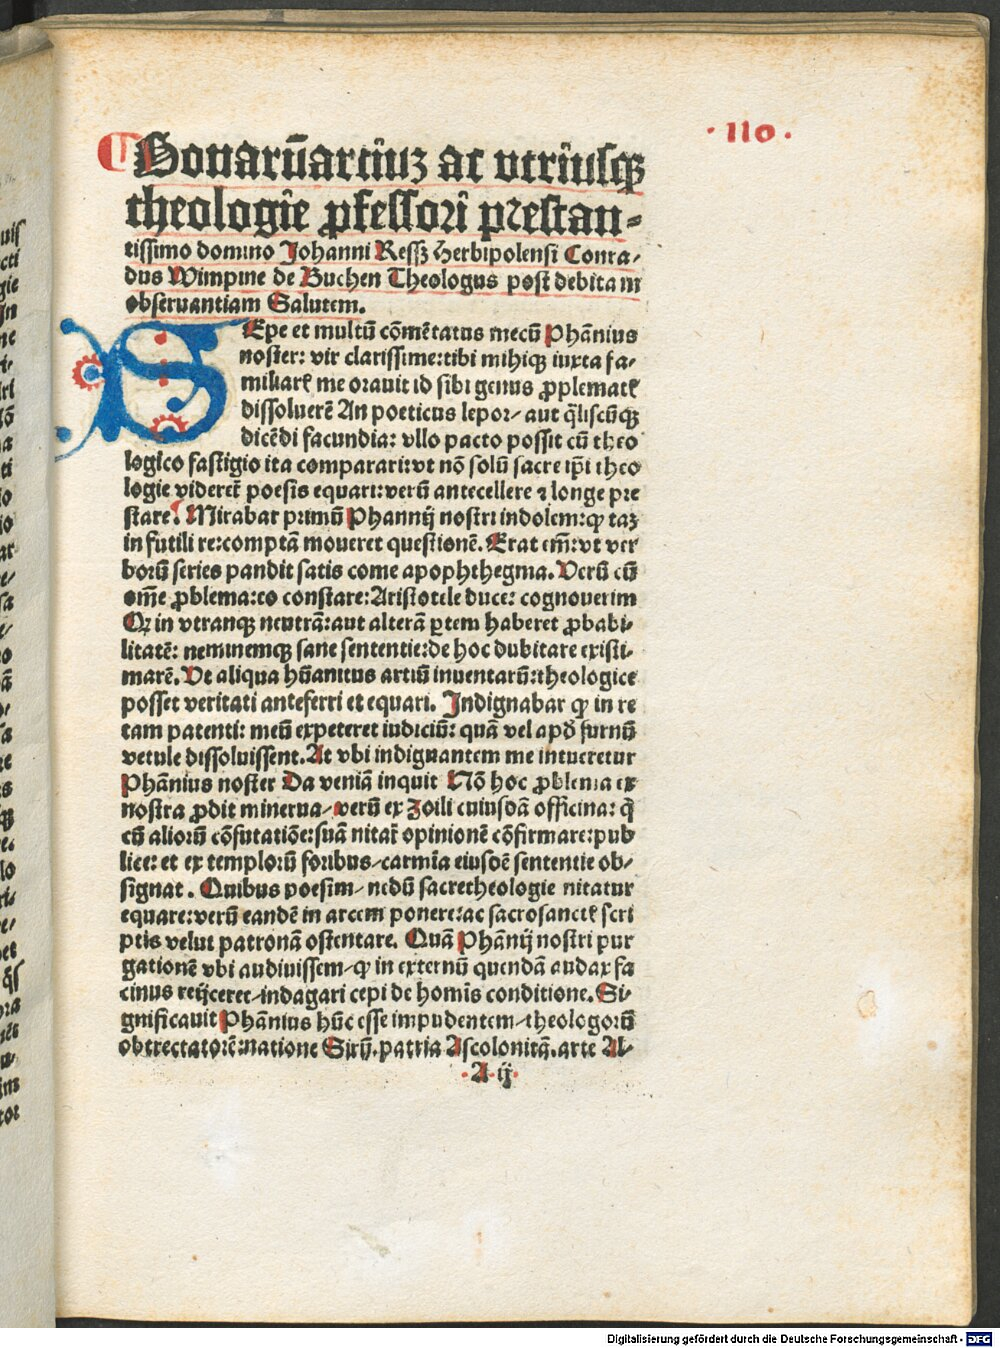 ·110·
Bonarū artiuʒ ac vtriusqꝫ
theologie ꝓfessori prestan⸗
tissimo domino Johanni Ressz Herbipolensi Conra/
dus Wimpine de Buchen Theologus post debitam
obseruantiam Salutem.
SEpe et multū cōmētatus mecū Phānius
noster: vir clarissime: tibi mihiqꝫ iuxta fa-
miliarē me orauit id sibi genus ꝓplematꝭ
dissoluerē An poeticus lepor/ aut q̄liscūqꝫ
dicēdi facundia: vllo pacto possit cū theo
logico fastigio ita comparari: vt nō solū sacre ip̄i theo
logie videret̄ poesis equari: verū antecellere ⁊ longe pre
stare. Mirabar primū Phannij nostri indolem: ꝙ taʒ
in futili re: comptā moueret questionē. Erat em̄: vt ver
borū series pandit satis come apophthegma. Verū cū
om̄e ꝓblema: eo constare: Aristotele duce: cognouerim
Qꝫ in vtranqꝫ neutrā: aut alterā ꝑtem haberet ꝓbabi-
litatē: neminemqꝫ sane sententie: de hoc dubitare existi-
marē. Vt aliqua hūanitus artiū inuentarū: theologice
posset veritati anteferri et equari. Indignabar ꝙ in re
tam patenti: meū expeteret iudiciū: quā vel apd̕ furnū
vetule dissoluissent. At vbi indignantem me intueretur
Phānius noster Da veniā inquit Nō hoc ꝓblema ex
nostra ꝓdit minerua/ verū ex Zoili cuiusdā officina: q̄
cū aliorū cōfutatiōe: suā nitat̄ opinionē cōfirmare: pub
lice: et ex templorū foribus/ carmīa eiusdē sententie ob/
signat. Quibus poesim/ nedū sacretheologie nitatur
equare: verū eandē in arcem ponere: ac sacrosanctꝭ scri
ptis velut patronā ostentare. Quā Phānij nostri pur
gationē vbi audiuissem/ ꝙ in externū quendā audax fa
cinus reijceret/ indagari cepi de homīs conditione. Si-
gnificauit Phānius hūc esse impudentem/ theologorū
obtrectatorē: natione Sirū. patria Ascolonitā. arte Al-
·A ij·
Digitalisierung gefördert durch die Deutsche Forschungsgemeinschaft - DFG